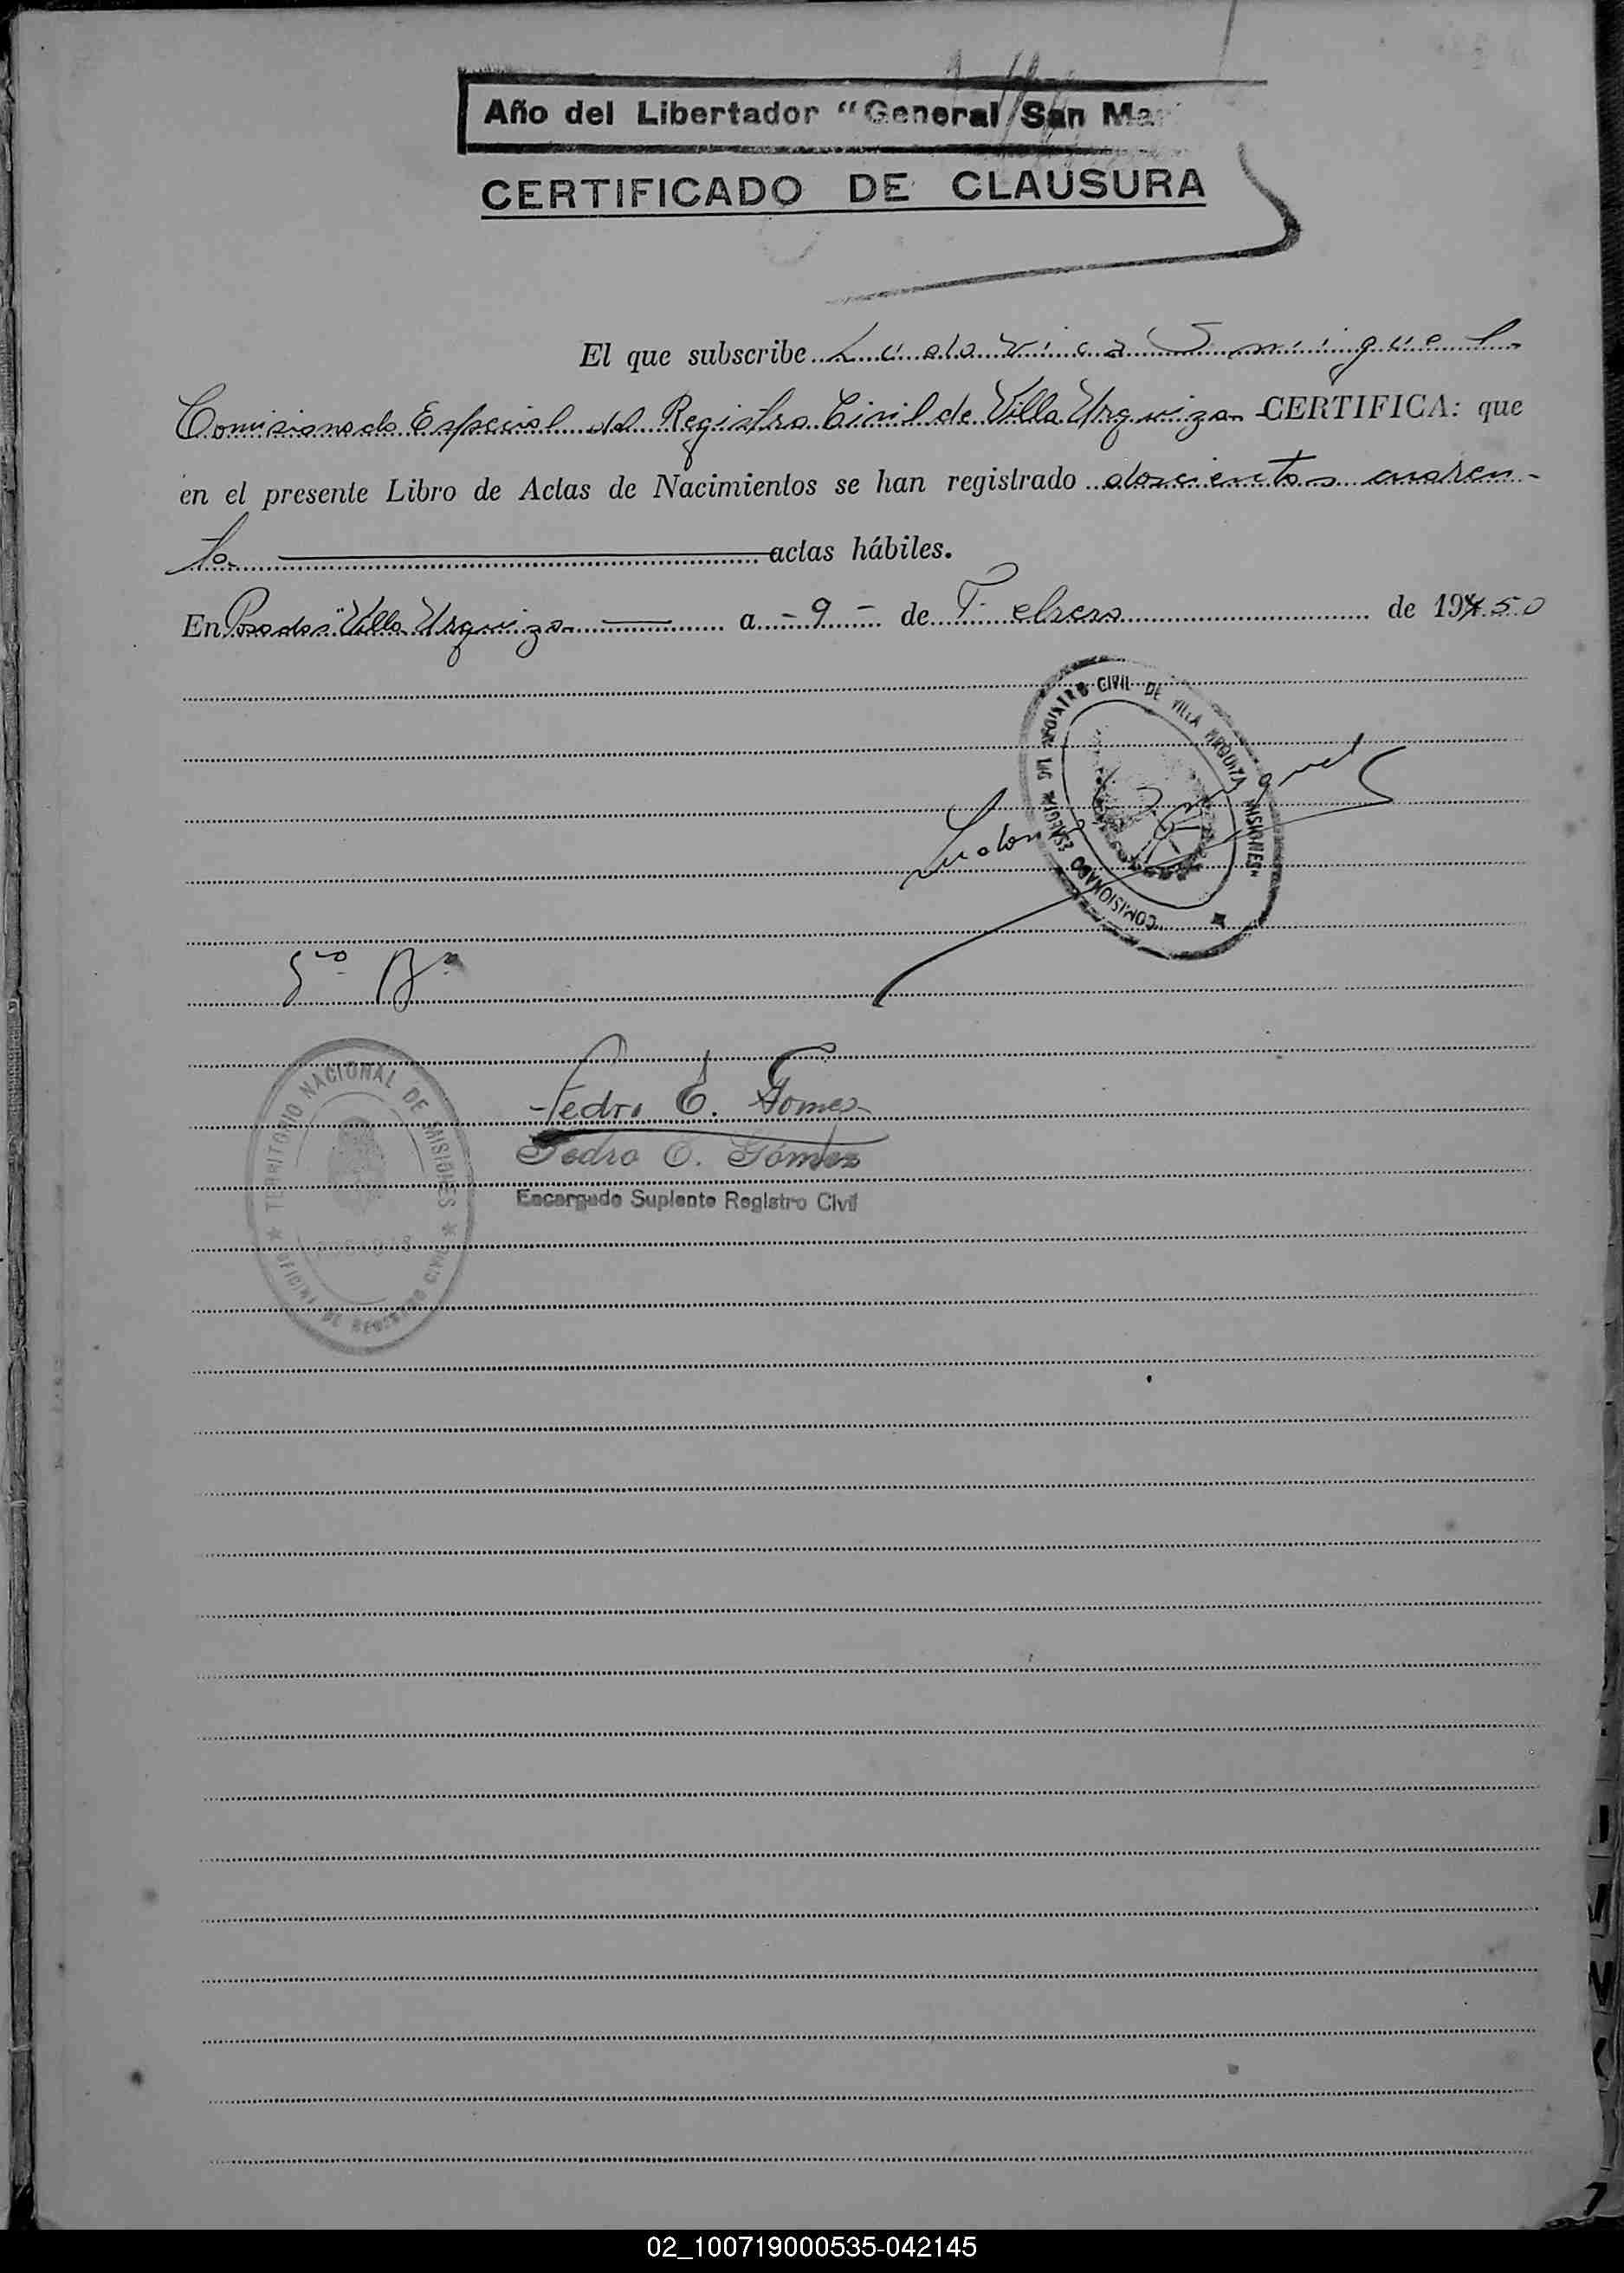 Año del Libertador "General San Mar
CERTIFICADO DE CLAUSURA
El que subscribe Ludovico Smiguel
Comisionado Especial del Registro Civil de Villa Urquiza CERTIFICA: que
en el presente Libro de Actas de Nacimientos se han registrado doscientos cuaren-
ta actas hábiles.
En Posadas "Villa Urquiza a - 9 - de Febrero de 1950
REGISTRO CIVIL DE VILLA URQUIZA MISIONES"
"COMISIONADO
Pedro E. Gomez
Pedro E. Gómez
Encargado Suplente Registro Civil
TERRITORIO NACIONAL DE MISIONES
OFICINA DE REGISTRO CIVIL
02_100719000535-042145